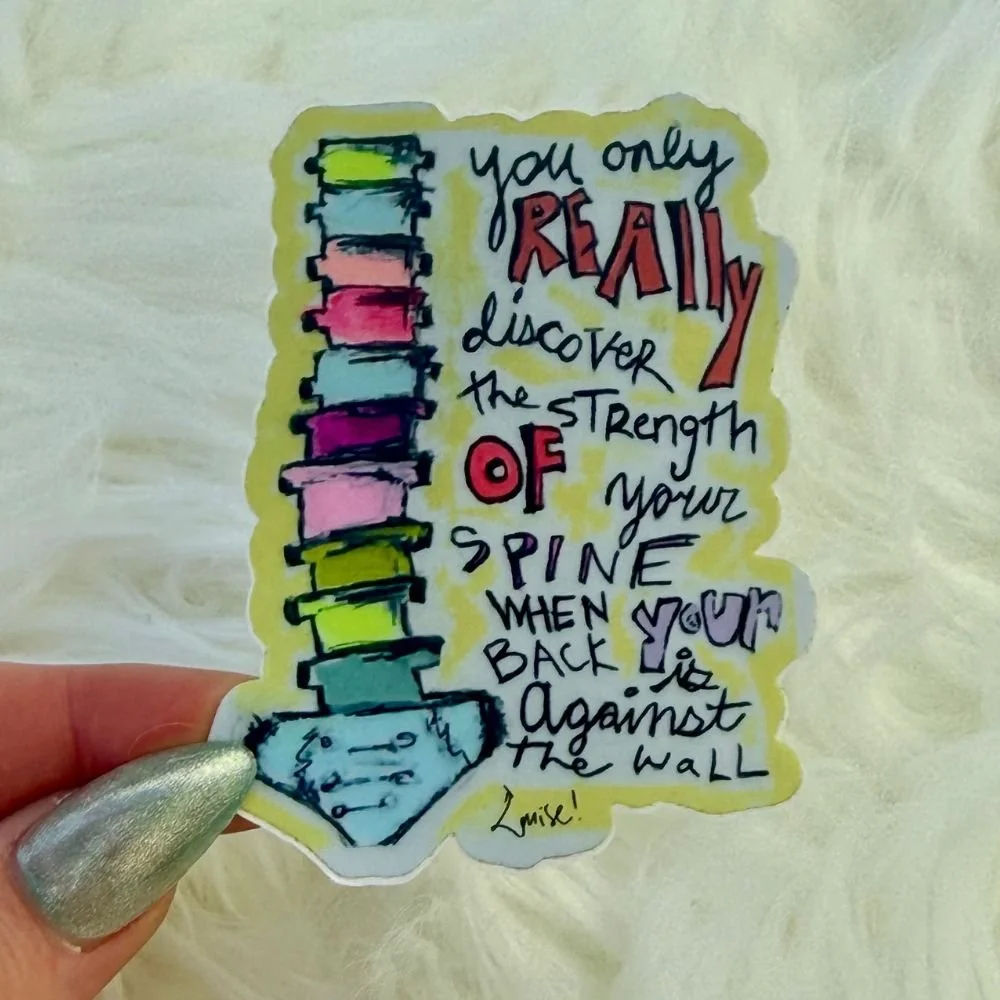 you only
REAlly
discover
the STRength
OF your
SPINE
WHEN your
BACK is
against
the waLL
Louise!